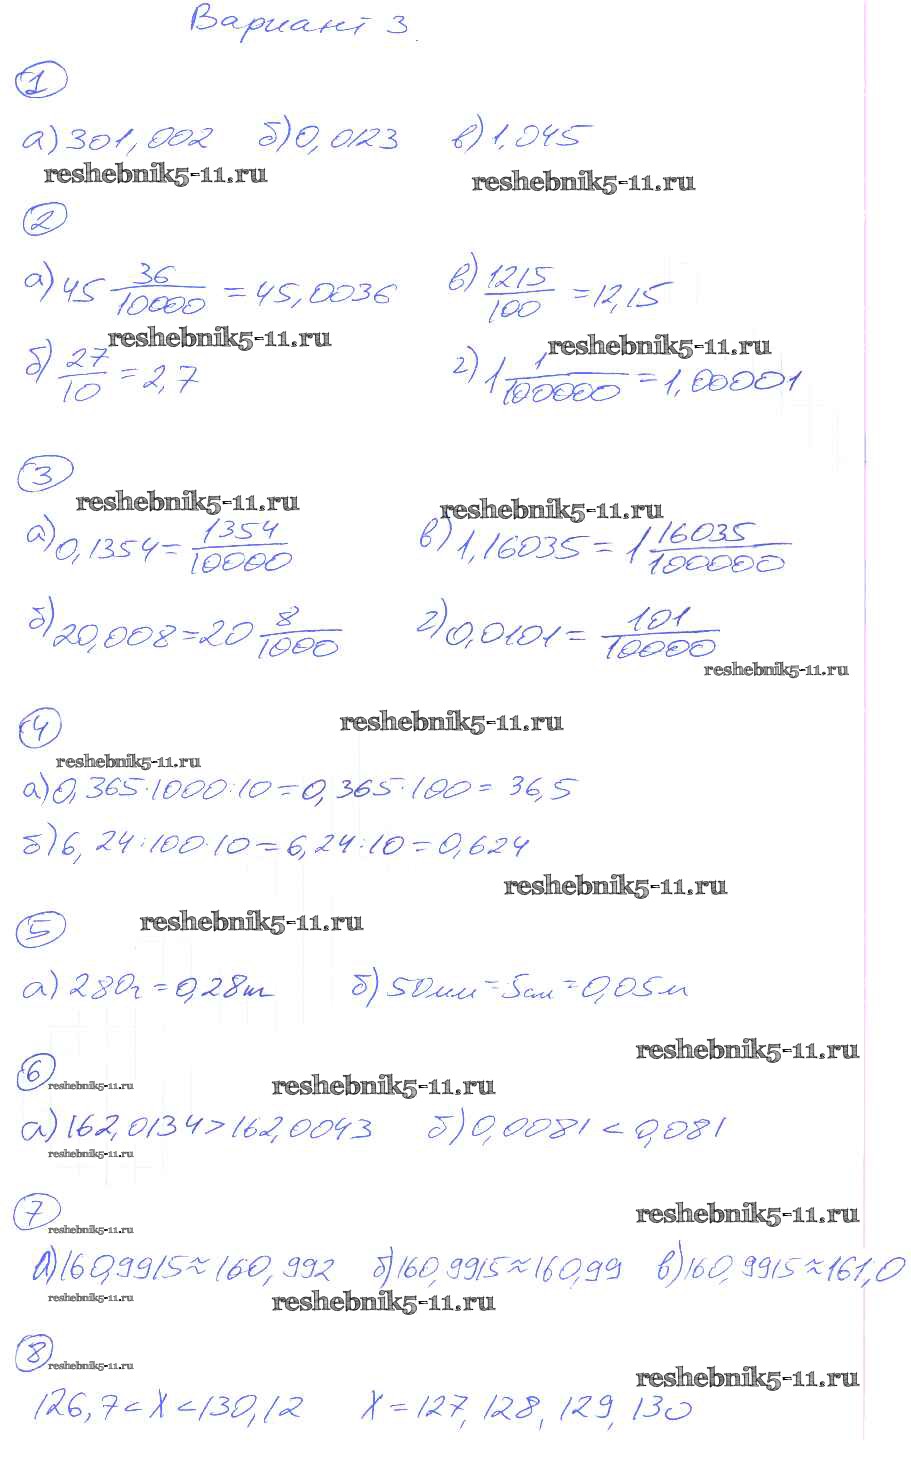 Вариант 3.
1
а) 301,002 б) 0,0123 в) 1,045
reshebnik5-11.ru reshebnik5-11.ru
2
а) 45 36/10000 = 45,0036 в) 1215/100 = 12,15
reshebnik5-11.ru reshebnik5-11.ru
б) 27/10 = 2,7 г) 1 1/100000 = 1,00001
3
reshebnik5-11.ru reshebnik5-11.ru
а) 0,1354 = 1354/10000 в) 1,16035 = 1 16035/100000
б) 20,008 = 20 8/1000 г) 0,0101 = 101/10000
reshebnik5-11.ru
4 reshebnik5-11.ru
reshebnik5-11.ru
а) 0,365·1000:10 = 0,365·100 = 36,5
б) 6,24:100·10 = 6,24:10 = 0,624
reshebnik5-11.ru
5 reshebnik5-11.ru
а) 280г = 0,28кг б) 50мм = 5см = 0,05м
reshebnik5-11.ru
6 reshebnik5-11.ru reshebnik5-11.ru
а) 162,0134 > 162,0043 б) 0,0081 < 0,081
reshebnik5-11.ru
7 reshebnik5-11.ru
reshebnik5-11.ru
а) 160,9915 ≈ 160,992 б) 160,9915 ≈ 160,99 в) 160,9915 ≈ 161,0
reshebnik5-11.ru reshebnik5-11.ru
8 reshebnik5-11.ru reshebnik5-11.ru
126,7 < X < 130,12 X = 127, 128, 129, 130